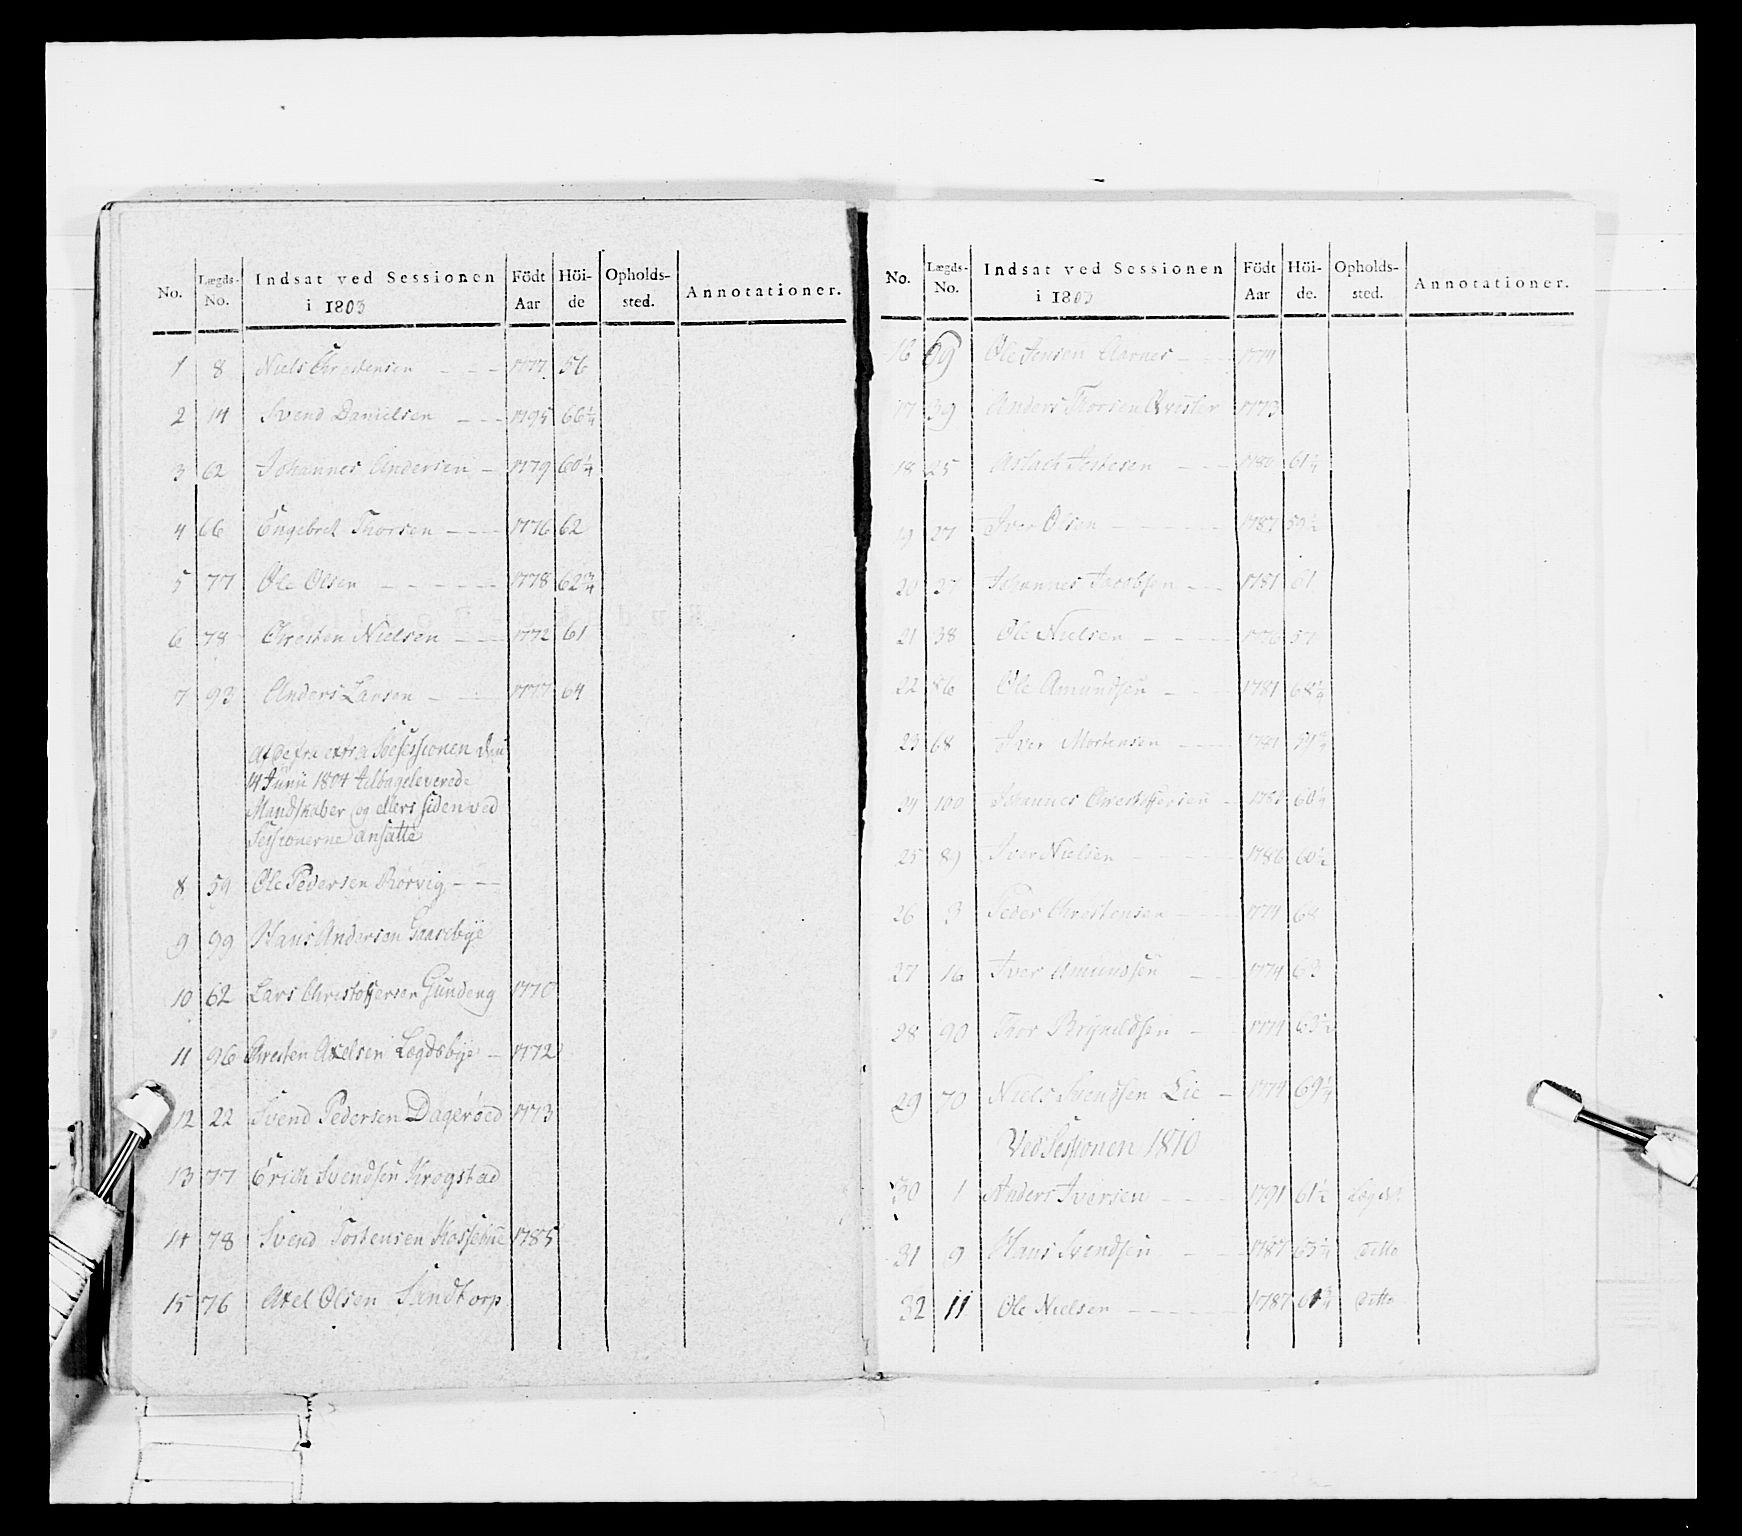 No. Lægds-No. Indsat ved Sessionen i 1803 Födt Aar Höi-de Opholds-sted. Annotationer.
1 8 Niels Chrestensen - - - 1777 56
2 14 Svend Danielsen - - - 1795 66 1/4
3 62 Johannes Andersen - 1779 60 1/4
4 66 Engebret Thorsen - - - 1776 62
5 77 Ole Olsen - - - - - 1778 62 3/4
6 78 Chresten Nielsen - - - 1772 61
7 93 Anders Larsen - - - 1777 64
Af de fra extra Sessionen den
14 Junii 1804 tilbageleverede
Mandskaber og ellers siden ved
Sessionerne ansatte
8 59 Ole Pedersen Rörvig - - -
9 99 Hans Andersen Gaasebye
10 62 Lars Christoffersen Gundeng 1770
11 96 Chresten Axelsen Lægdsbye - 1772
12 22 Svend Pedersen Dageröed 1773
13 77 Erich Svendsen Krogstad
14 78 Svend Tostensen Kossebue 1785
15 76 Axel Olsen Sandtorp
No. Lægds-No. Indsat ved Sessionen i 1803 Födt Aar Höi-de. Opholds-sted. Annotationer.
16 99 Ole Jensen Aarnes - - - 1774
17 39 Anders Thorsen Qvister 1773
18 25 Aslach Jostesen - - - 1780 61 1/4
19 27 Iver Olsen - - - - - 1787 59 1/2
20 27 Johannes Jacobsen - - - 1781 61
21 38 Ole Nielsen - - - - 1776 57
22 86 Ole Amundsen - - - 1781 68 1/4
23 68 Iver Mortensen - - - -
24 100 Johannes Chrestoffersen - 60 1/4
25 89 Iver Nielsen - - - - 1786 60 1/2
26 3 Peder Chrestensen - - - 1774 68
27 16 Iver Amundsen - - 1774 63
28 90 Thor Brynildsen - 1774 63 1/2
29 70 Niels Svendsen Lie - 1774 69 1/4
Ved Sessionen 1810
30 1 Anders Iversen - - - 1791 61 1/2 Lægdet
31 9 Hans Svendsen - - - 1787 63 1/4 ditto
32 11 Ole Nielsen - - - - - 1787 61 3/4 ditto